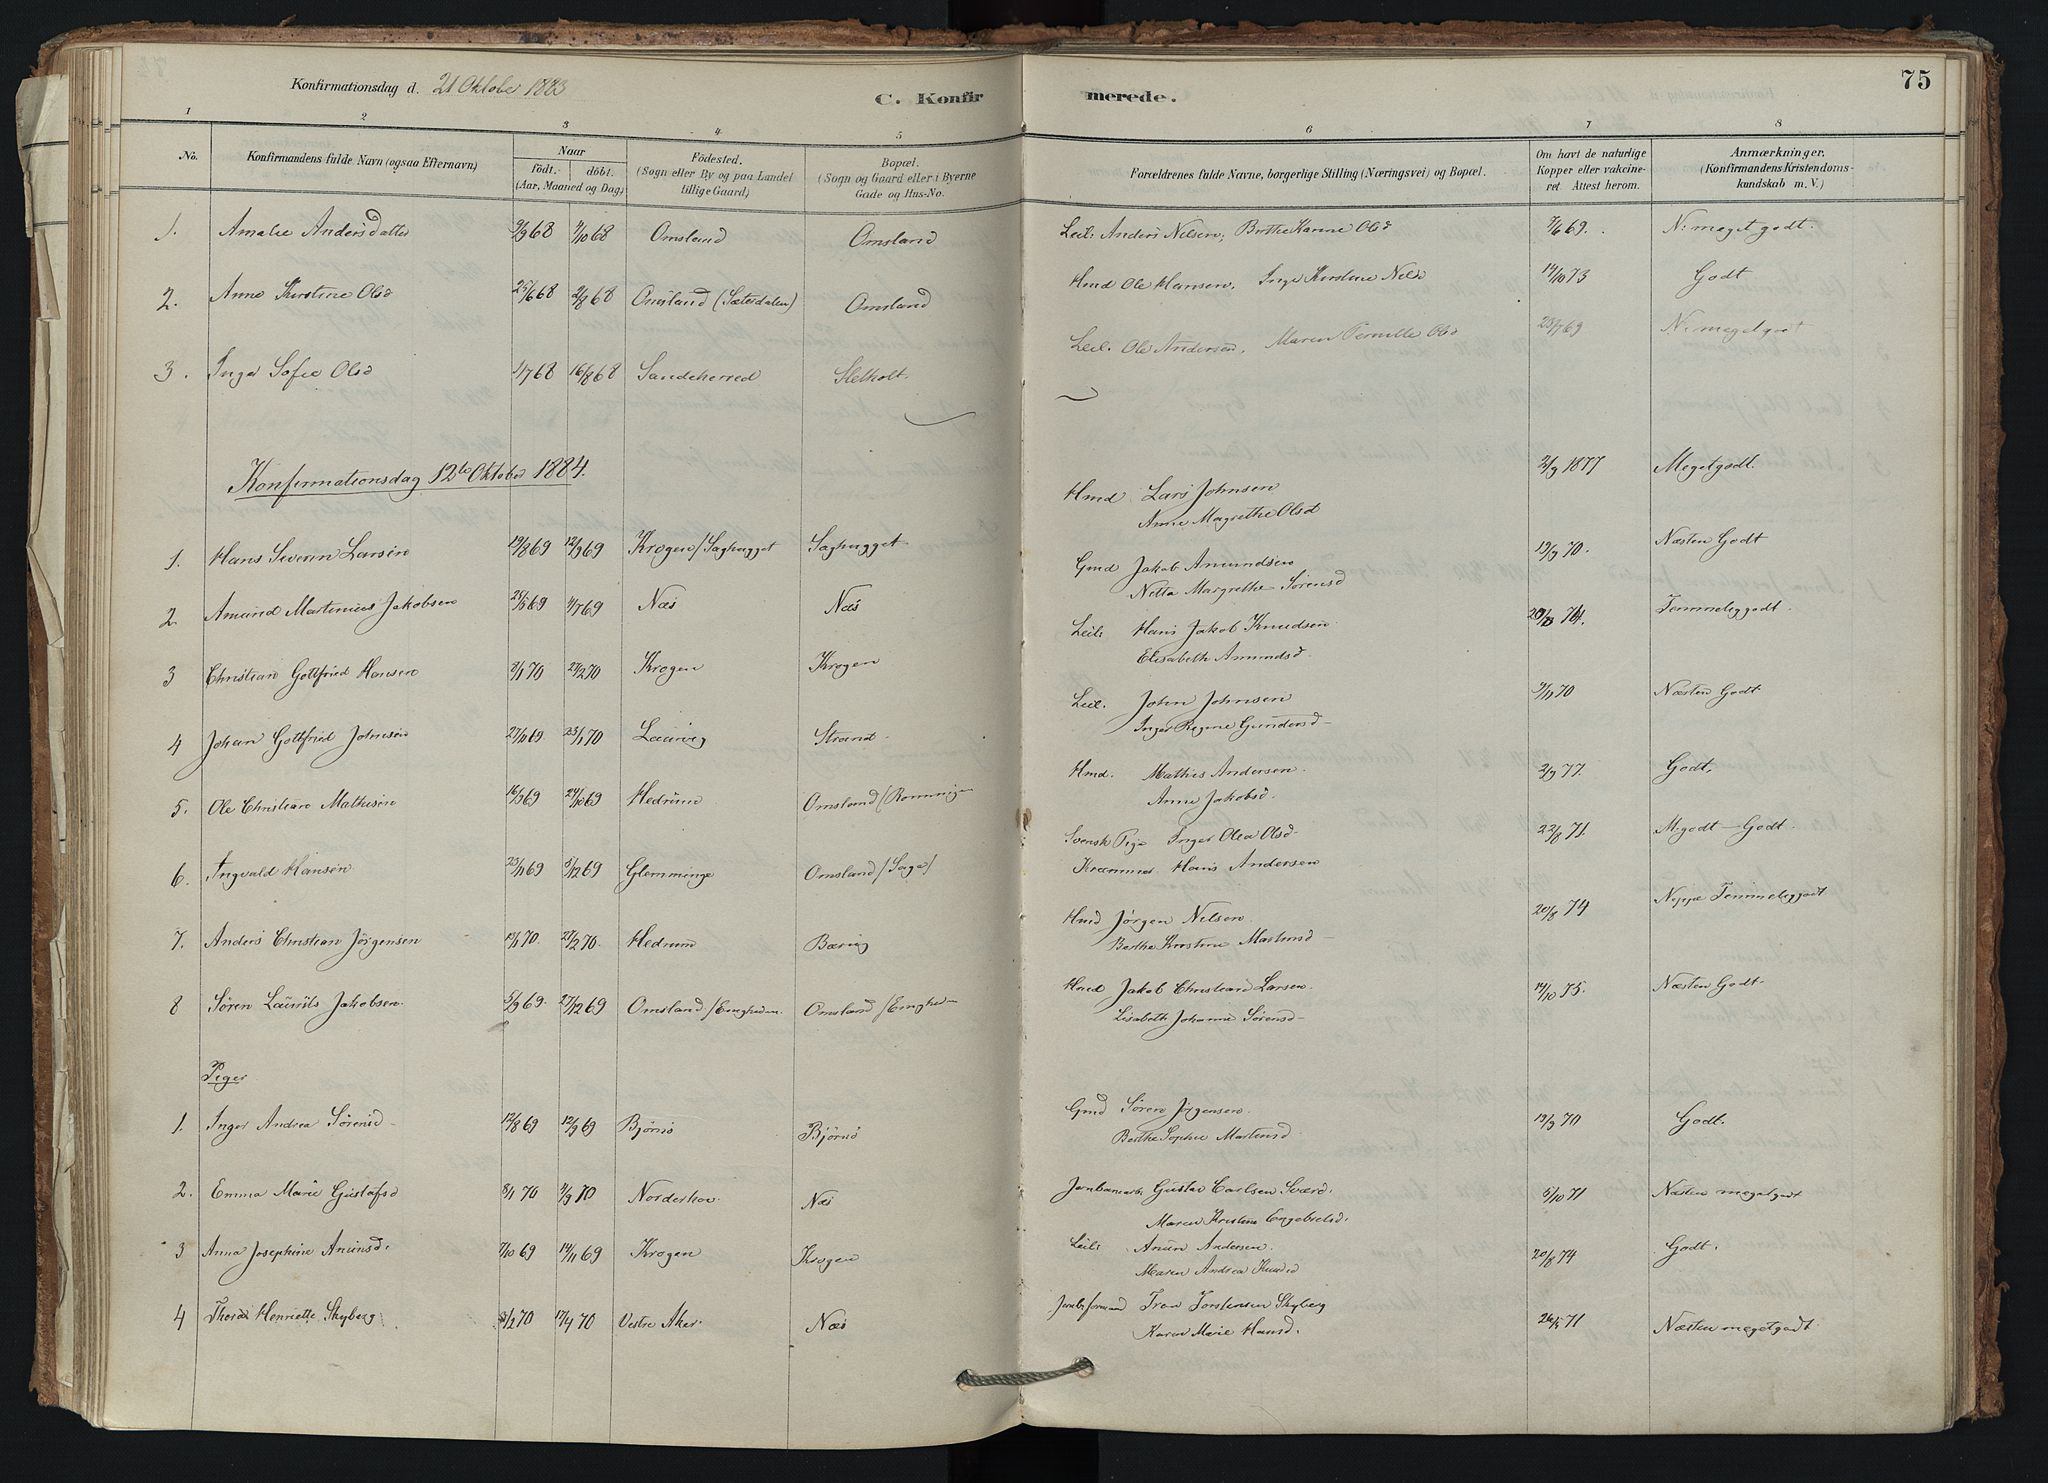 75
Konfirmationsdag d. 21 Oktober 1883
C. Konfirmerede.
1 2 3 4 5 6 7 8
No. Konfirmandens fulde Navn (ogsaa Efternavn) Naar födt. döbt. (Aar, Maaned og Dag) Födested. (Sogn eller By og paa Landet tillige Gaard) Bopæl. (Sogn og Gaard eller i Byerne Gade og Hus-No. Forældrenes fulde Navne, borgerlige Stilling (Næringsvei) og Bopæl. Om havt de naturlige Kopper eller vakcineret Attest herom. Anmærkninger. (Konfirmandens Kristendomskundskab m. V.)
1. Amalie Andersdatter 9/9 68 4/10 68 Omsland Omsland Leil: Anders Nilsen, Berthe Karine Olsd 7/6 69. N: meget godt.
2. Anne Kirstine Olsd 25/6 68 2/8 68 Omsland (Sæterdalen) Omsland Hmd Ole Hansen, Inger Kirstine Nilsd 14/10 73 Godt
3. Inger Sofie Olsd 1/7 68 16/8 68 Sandeherred Sletholt. Leil. Ole Andersen, Maren Pernille Olsd 23/7 69 N: megetgodt
Konfirmationsdag 12te Oktober 1884.
1. Hans Severin Larsen 19/8 69 12/9 69 Krogen/Saghugget Saghugget. Hmd Lars Johnsen 2/9 1877 Megetgodt.
Anne Magrethe Olsd
2. Amund Martinius Jakobsen 28/5 69 4/7 69 Næs Næs Gmd Jakob Amundsen 19/9 70. Næsten Godt
Netta Margrethe Sørensd
3 Christian Gottfried Hansen 2/1 70 27/2 70 Krogen Krogen Leil: Hans Jakob Knudsen 20/8 74. Temmeliggodt.
Elisabeth Amundsd.
4 Johan Gottfried Johnsen 27/10 69. 23/1 70 Laurvig Strand. Leil. John Johnsen 9/11 70 Næsten Godt.
Inger Regine Gundersd
5. Ole Christian Mathisen 16/9 69 24/10 69 Hedrum Omsland/Rønningen Hmd. Mathis Andersen. 2/9 77. Godt.
Anne Jakobsd.
6. Ingvald Hansen 23/11 69 5/12 69 Glemminge Omsland/Saga/ Svensk Pige Inger Olea Olsd 22/8 71. M.godt - Godt.
Kræmmer Hans Andersen
7. Anders Christian Jörgensen 13/1 70. 27/2 70. Hedrum Bærug Hmd Jørgen Nilsen. 20/8 74 Neppe Temmeliggodt
Berthe Kristine Martinsd
8 Søren Laurits Jakobsen. 5/9 69. 27/12 69 Omsland/Engheden. Omsland/Engheden Hmd Jakob Christian Larsen. 14/10 75. Næsten Godt.
Lisabeth Johanne Sørensd
Piger
1. Inger Andrea Sørensd 12/8 69 12/9 69 Bjørnø Bjørnø Gmd Søren Jørgensen. 19/9 70 Godt.
Berthe Sophie Martinsd
2. Emma Marie Gustafsd 8/1 70 4/9 70 Norderhov Næs Jernbanearb. Gustav Carlsen Sværd. 5/10 71 Næsten megetgodt
Maren Kristine Engebretsd.
3 Anna Josephine Anunsd. 7/10 69 14/11 69 Krogen Krogen Leil: Anun Andersen. 20/8 74 Godt.
Maren Andrea Knudsd
4 Thora Henriette Skyberg 3/2 70 17/4 70 Vestre Aker. Næs Jernb.formand Iver Torstensen Skyberg 26/5 71 Næsten megetgodt.
Karen Marie Hansd.